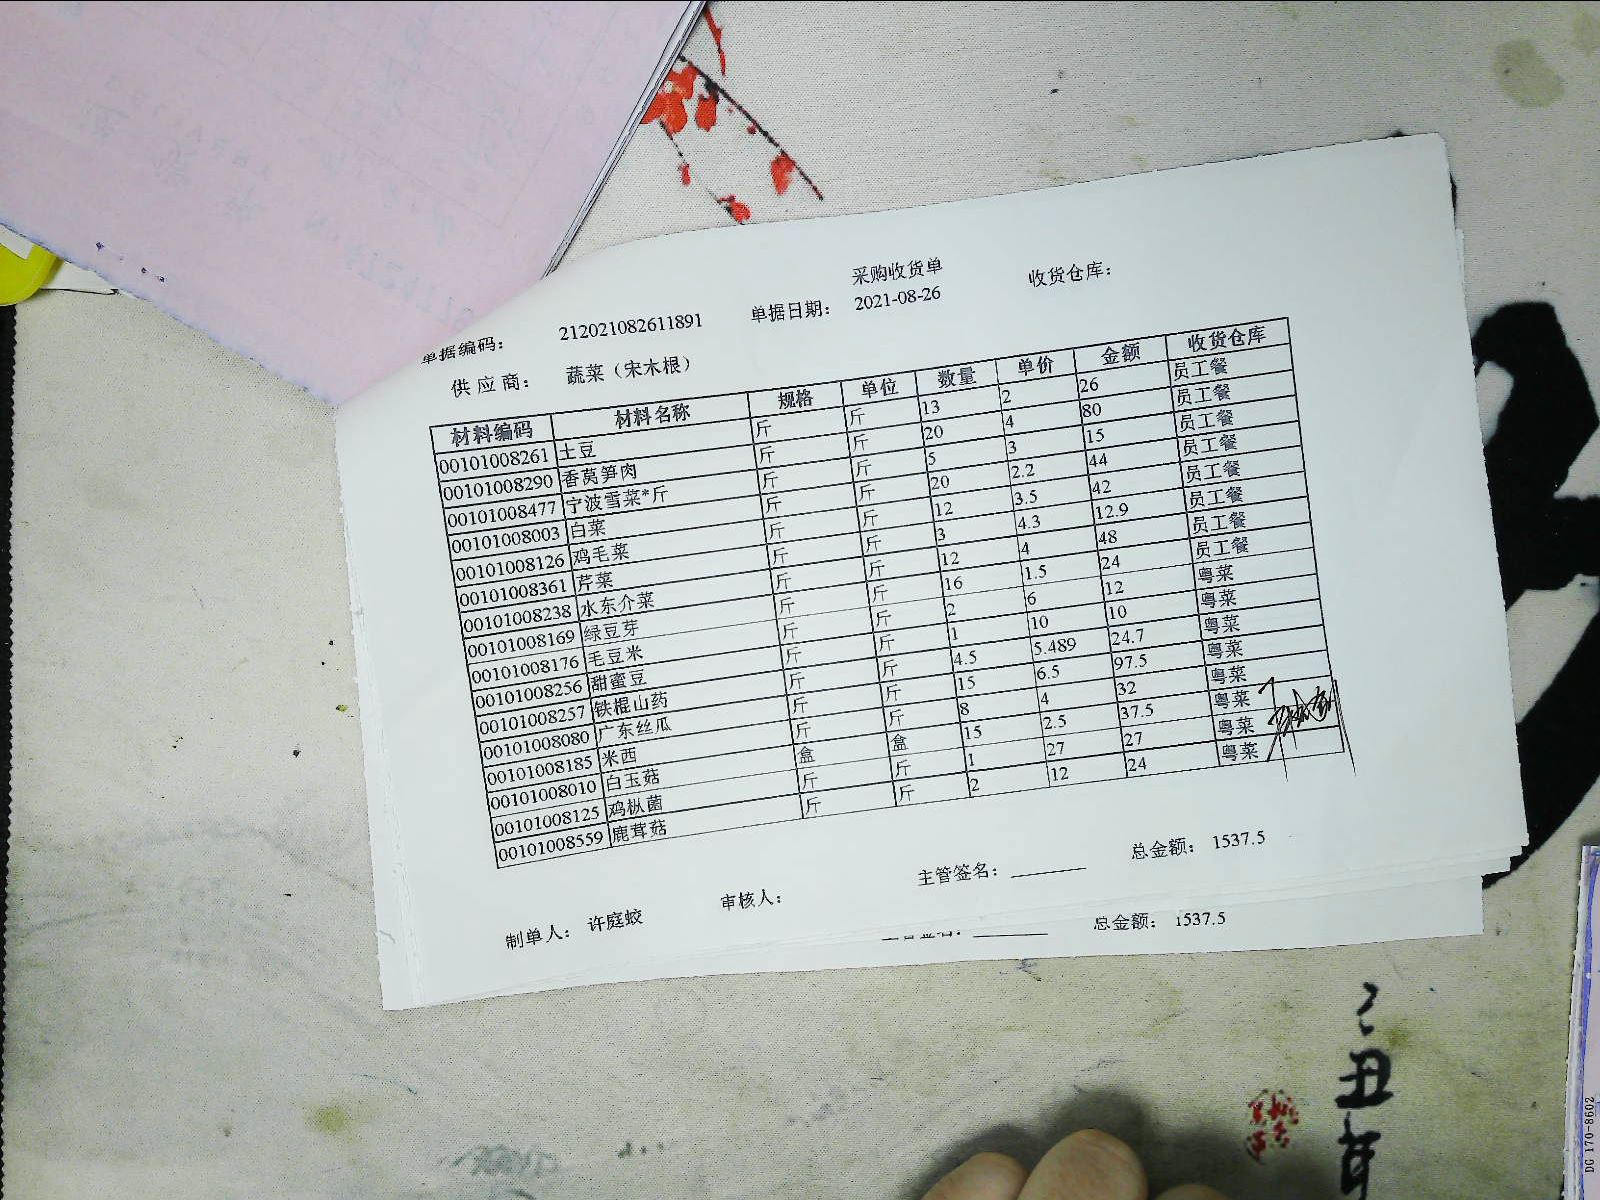 采购收货单
单据编码： 212021082611891 单据日期： 2021-08-26 收货仓库：
供应商： 蔬菜（宋木根）
材料编码 材料名称 规格 单位 数量 单价 金额 收货仓库
00101008261 土豆 斤 斤 13 2 26 员工餐
00101008290 香莴笋肉 斤 斤 20 4 80 员工餐
00101008477 宁波雪菜*斤 斤 斤 5 3 15 员工餐
00101008003 白菜 斤 斤 20 2.2 44 员工餐
00101008126 鸡毛菜 斤 斤 12 3.5 42 员工餐
00101008361 芹菜 斤 斤 3 4.3 12.9 员工餐
00101008238 水东介菜 斤 斤 12 4 48 员工餐
00101008169 绿豆芽 斤 斤 16 1.5 24 员工餐
00101008176 毛豆米 斤 斤 2 6 12 粤菜
00101008256 甜蜜豆 斤 斤 1 10 10 粤菜
00101008257 铁棍山药 斤 斤 4.5 5.489 24.7 粤菜
00101008080 广东丝瓜 斤 斤 15 6.5 97.5 粤菜
00101008185 米西 斤 斤 8 4 32 粤菜
00101008010 白玉菇 盒 盒 15 2.5 37.5 粤菜
00101008125 鸡枞菌 斤 斤 1 27 27 粤菜
00101008559 鹿茸菇 斤 斤 2 12 24 粤菜
制单人： 许庭蛟 审核人： 主管签名： 总金额： 1537.5
总金额： 1537.5
丑
DG 170-8602